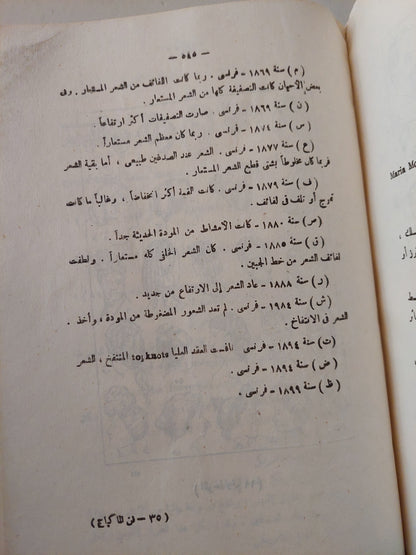 — ٥٤٥ —
( م ) سنة ١٨٦٩ - فرنسى . ربما كانت اللفائف من الشعر المستعار . وفى
بعض الأحيان كانت التصفيفة كلها من الشعر المستعار .
( ن ) سنة ١٨٦٩ - فرنسى . صارت التصفيفات أكثر ارتفاعاً .
( س ) سنة ١٨٧٤ - فرنسى . ربما كان معظم الشعر مستعاراً .
( ع ) سنة ١٨٧٧ - فرنسى . الشعر عند الصدغين طبيعى ، أما بقية الشعر
فربما كان مخلوطاً بشتى قطع الشعر المستعار .
( ف ) سنة ١٨٧٩ - فرنسى . كانت القمة أكثر انخفاضاً ، وغالباً ما كانت
تموج أو تلف فى لفائف .
( ص ) سنة ١٨٨٠ - كانت الأمشاط من المودة الحديثة جداً .
( ق ) سنة ١٨٨٥ - فرنسى . كان الشعر الخلفى كله مستعاراً . ولطفت
لفائف الشعر من خط الجبين .
( ر ) سنة ١٨٨٨ - عاد الشعر إلى الارتفاع من جديد .
( ش ) سنة ١٩٨٤ - فرنسى . لم تعد الشعور المنضغطة من المودة ، وأخذ
الشعر فى الانتفاخ .
( ت ) سنة ١٨٩٤ - فرنسى ناقست العقد العليا المنتفخ ، الشعر
( ض ) سنة ١٨٩٤ - فرنسى .
( ظ ) سنة ١٨٩٩ - فرنسى .
( ٣٥ — فن الماكياج )
Maria Mo